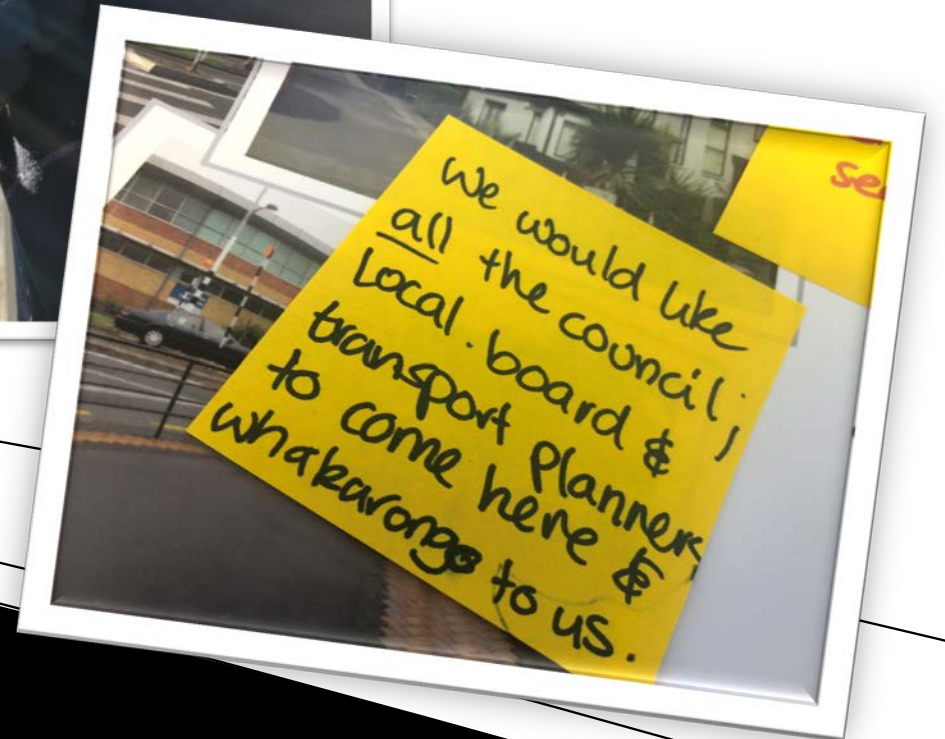 We would like
all the council;
Local board &
transport planners
to come here &
whakarongo to us.
se